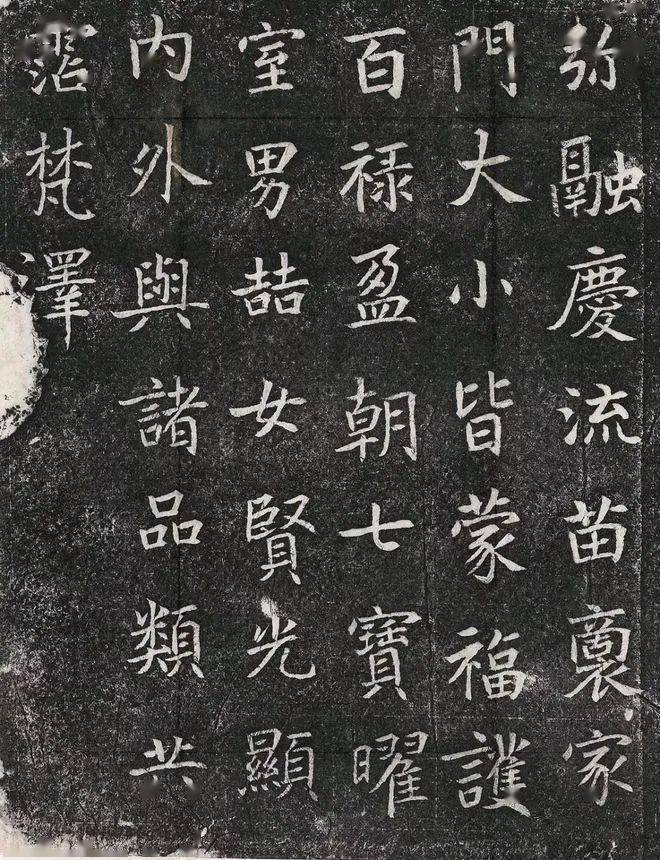 弥融慶流苗裔家
門大小皆蒙福護
百禄盈朝七寶曜
室男喆女賢光顯
内外與諸品類共
霑梵澤